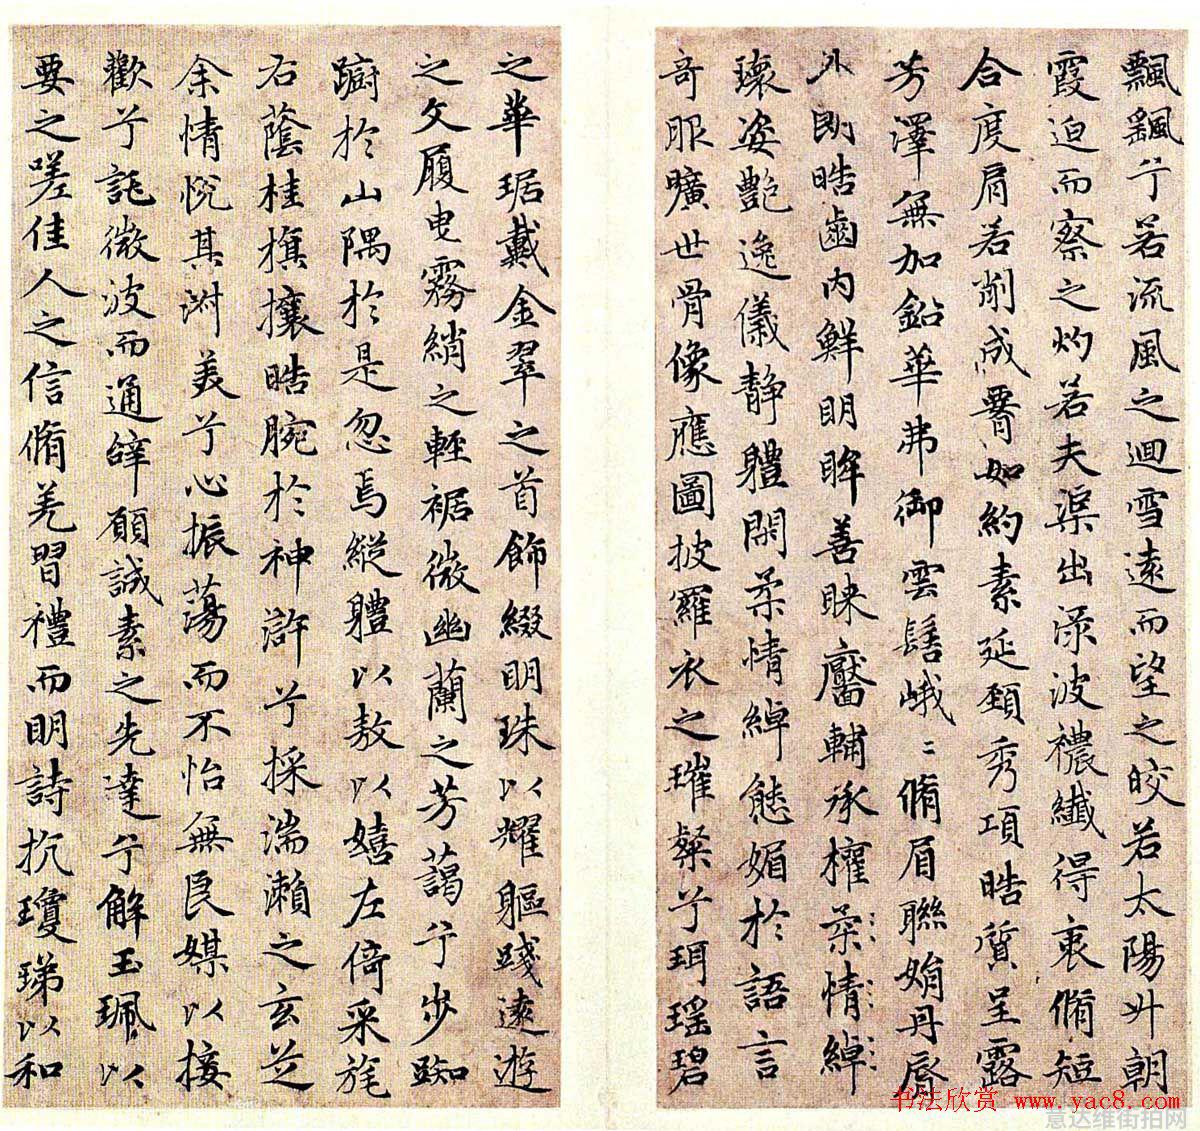 飄颻兮若流風之迴雪遠而望之皎若太陽升朝
霞迫而察之灼若夫渠出渌波襛纖得衷脩短
合度肩若削成腰如約素延頸秀項皓質呈露
芳澤無加鉛華弗御雲髻峨〻脩眉聯娟丹脣
外朗皓齒内鮮明眸善睞靨輔承權柔情綽
瓌姿艷逸儀静體閑柔情綽態媚於語言
奇服曠世骨像應圖披羅衣之璀粲兮珥瑶碧
之華琚戴金翠之首飾綴明珠以耀軀踐遠遊
之文履曳霧綃之輕裾微幽蘭之芳藹兮步踟
蹰於山隅於是忽焉縱體以敖以嬉左倚采旄
右蔭桂旗攘皓腕於神滸兮採湍瀨之玄芝
余情悅其淑美兮心振蕩而不怡無良媒以接
歡兮託微波而通辭願誠素之先達兮解玉珮以
要之嗟佳人之信脩羌習禮而明詩抗瓊珶以和
书法欣赏 www.yac8.com
意达维街拍网